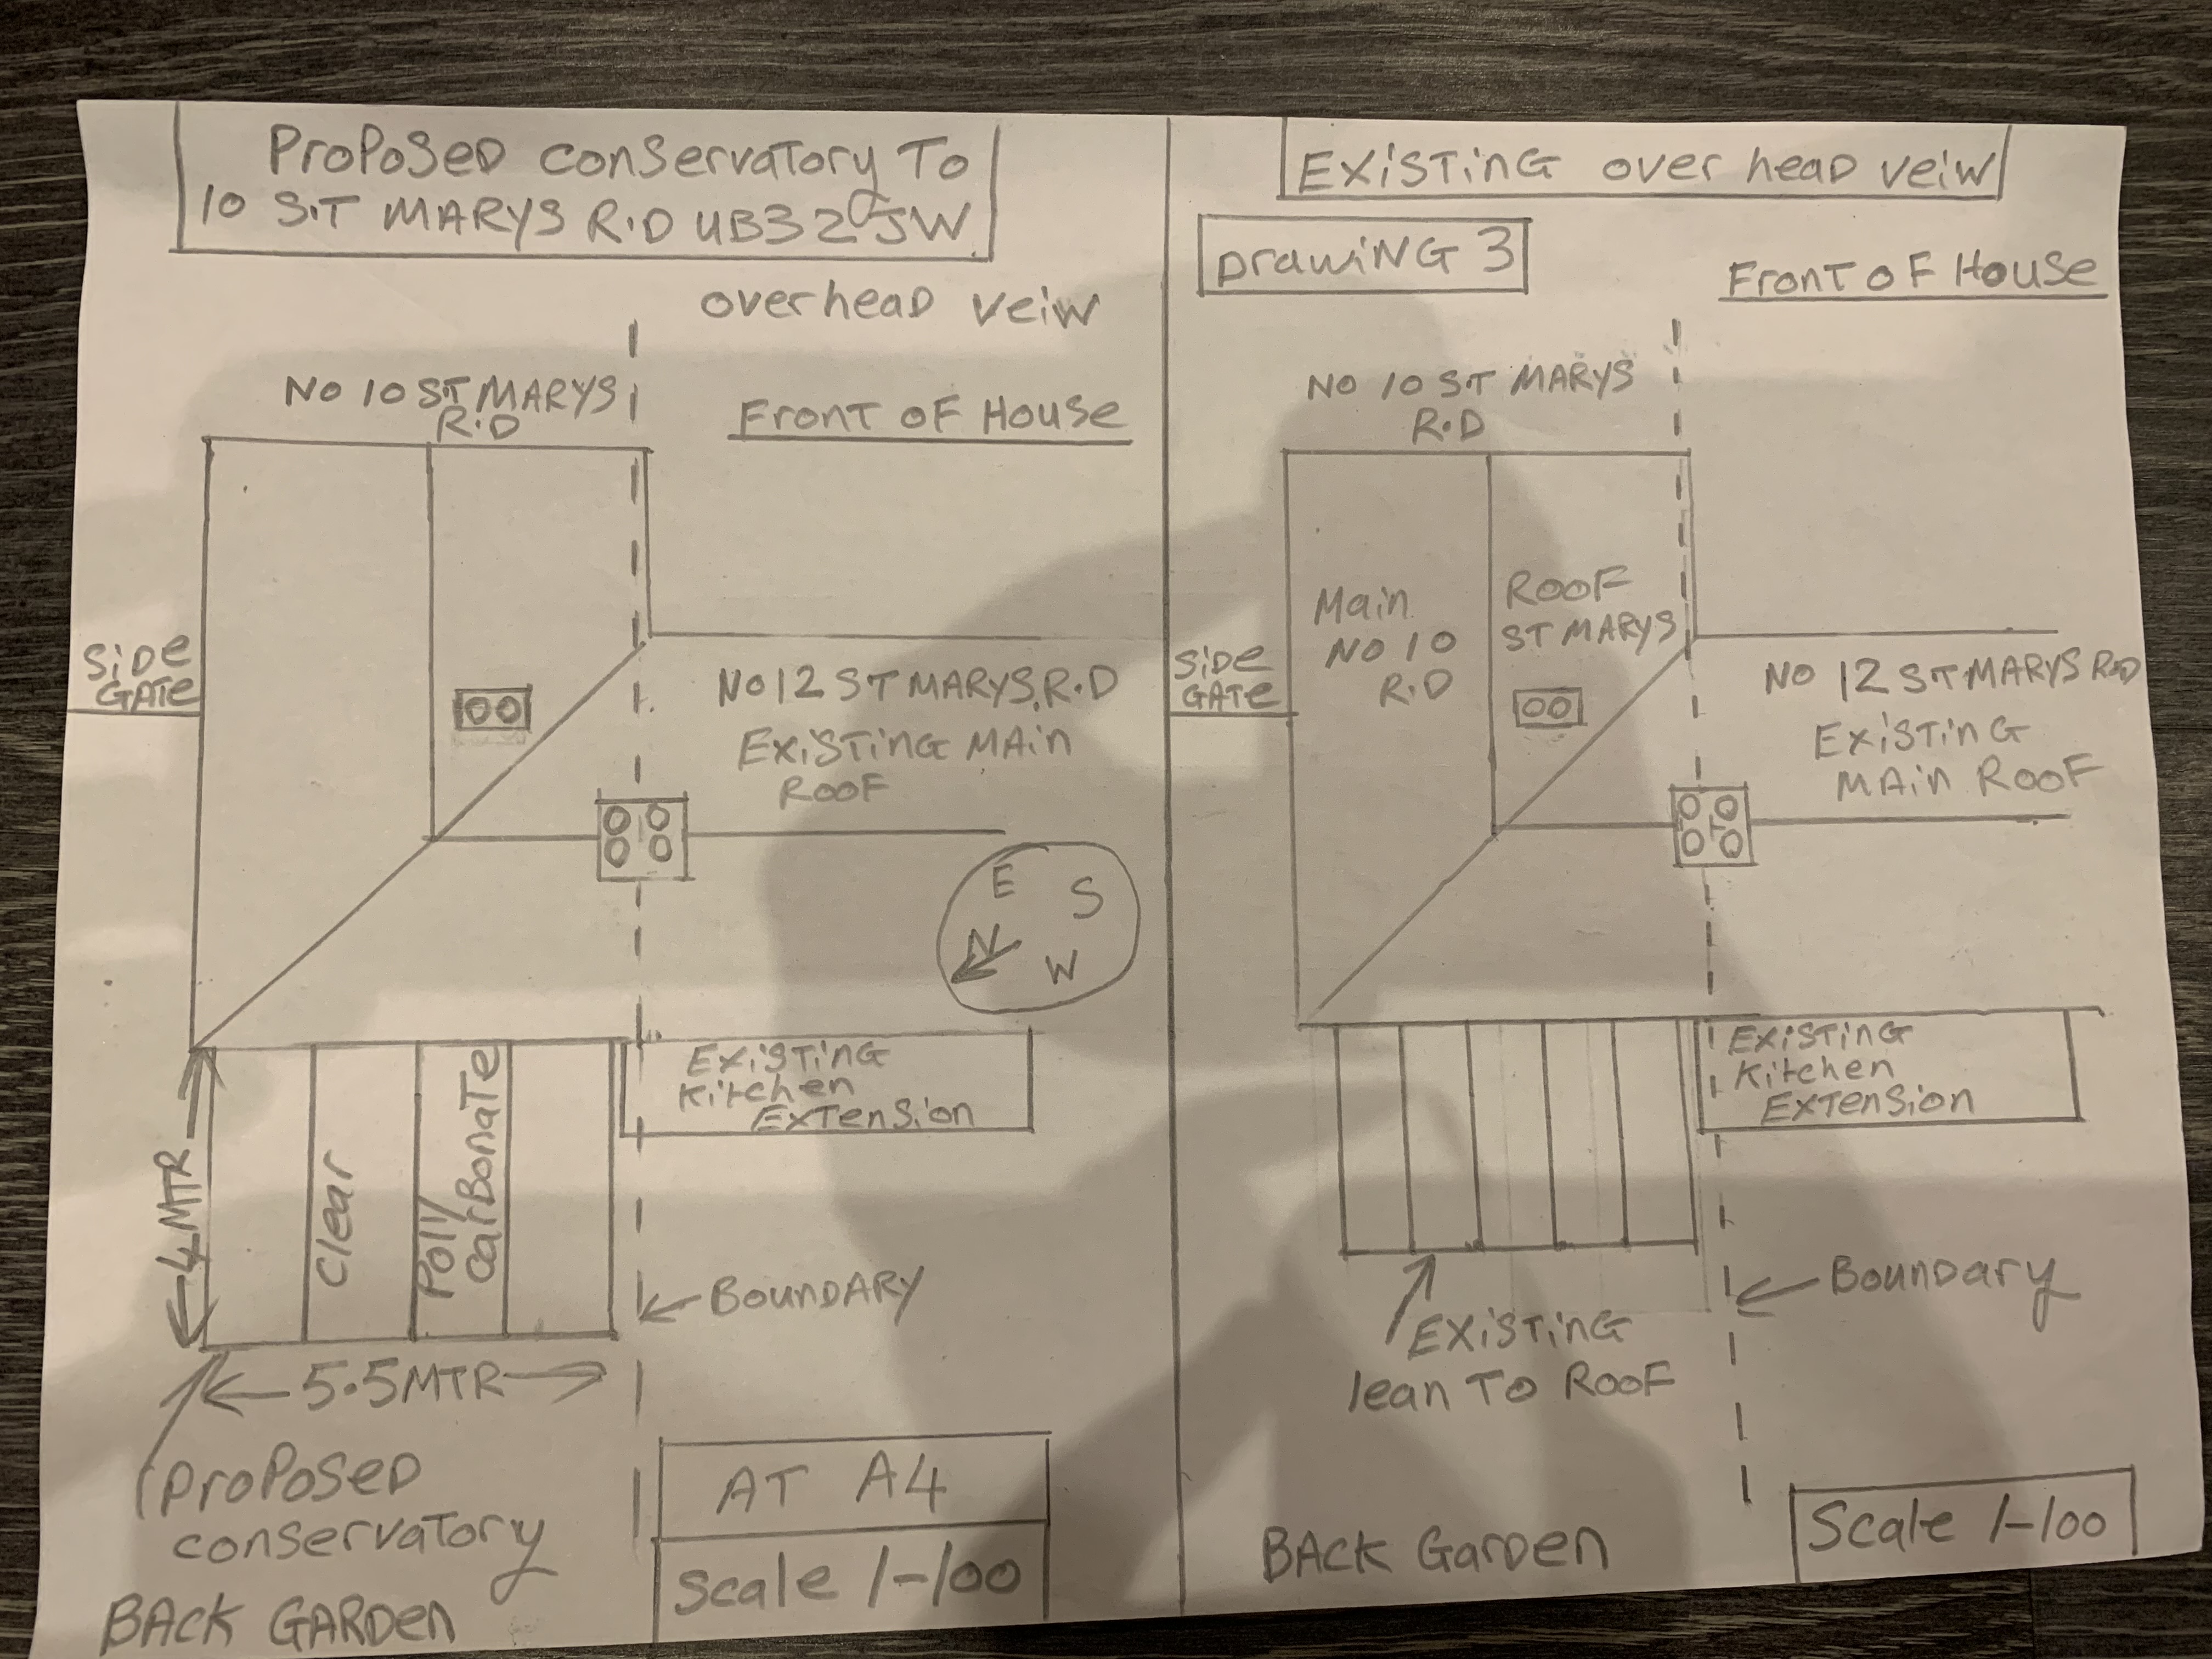 Proposed conservatory To
10 S.T MARYS R.D UB3 2JW
overhead veiw
No 10 ST MARYS
R.D
Front of House
SiDe
GATe
No 12 ST MARYS R.D
Existing MAin
ROOF
E
S
N
W
Existing
Kitchen
ExTension
4 MTR
Clear
Polly
CarBonaTe
BOUNDARY
5.5MTR
Proposed
conservatory
BACK GARDen
AT A4
Scale 1-100
EXiSTiNG over head veiw
DrawiNG 3
Front of House
No 10 S.T MARYS
R.D
Main
No 10
R.D
ROOF
ST MARYS
SiDe
GATe
No 12 ST MARYS R.D
Existing
MAin ROOF
Existing
Kitchen
EXTension
Boundary
EXiSTing
lean To ROOF
BAck Garden
Scale 1-100